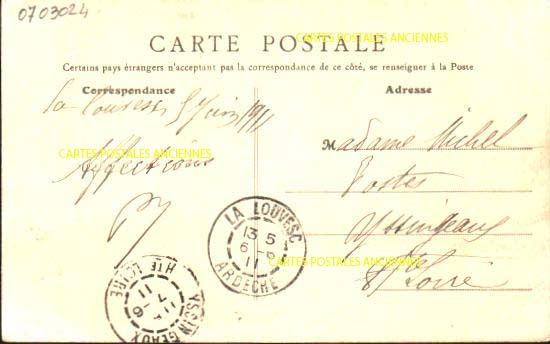 0703024
CARTE POSTALE
CARTES POSTALES ANCIENNES
Certains pays étrangers n'acceptant pas la correspondance de ce côté, se renseigner à la Poste
Correspondance
Adresse
La Louvesc 5 Juin 1911
CARTES POSTALES ANCIENNES
Affections
Madame Michel
Postes
Yssingeaux
Hte Loire
LA LOUVESC
13 5
6 - 6
11
ARDECHE
CARTES POSTALES ANCIENNES
YSSINGEAUX
7 - 6
11
HTE LOIRE